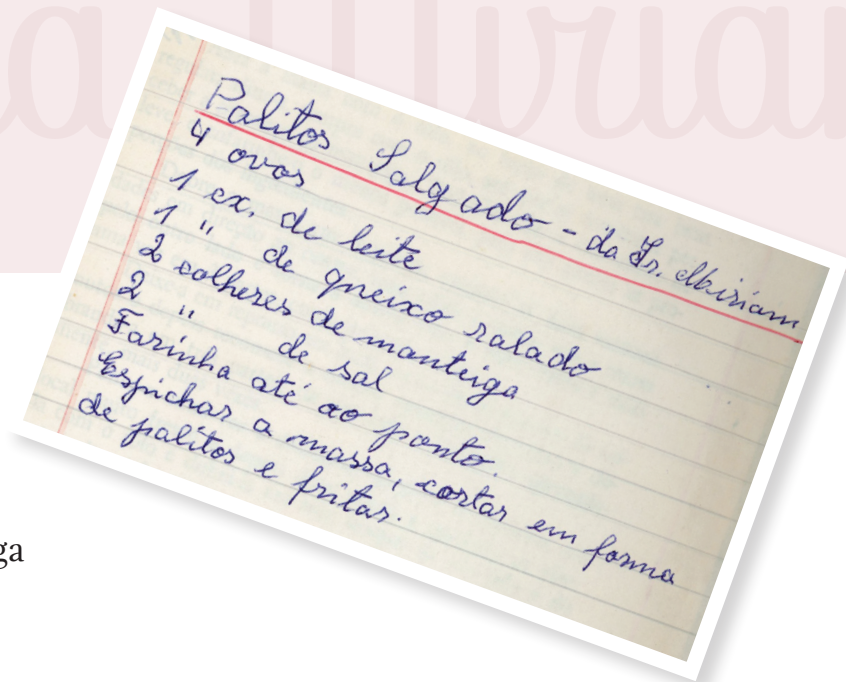 Palitos Salgado - da Sr. Miriam
4 ovos
1 cx. de leite
1 " de queixo ralado
2 colheres de manteiga
2 " de sal
Farinha até ao ponto.
Espichar a massa, cortar em forma
de palitos e fritar.
ga